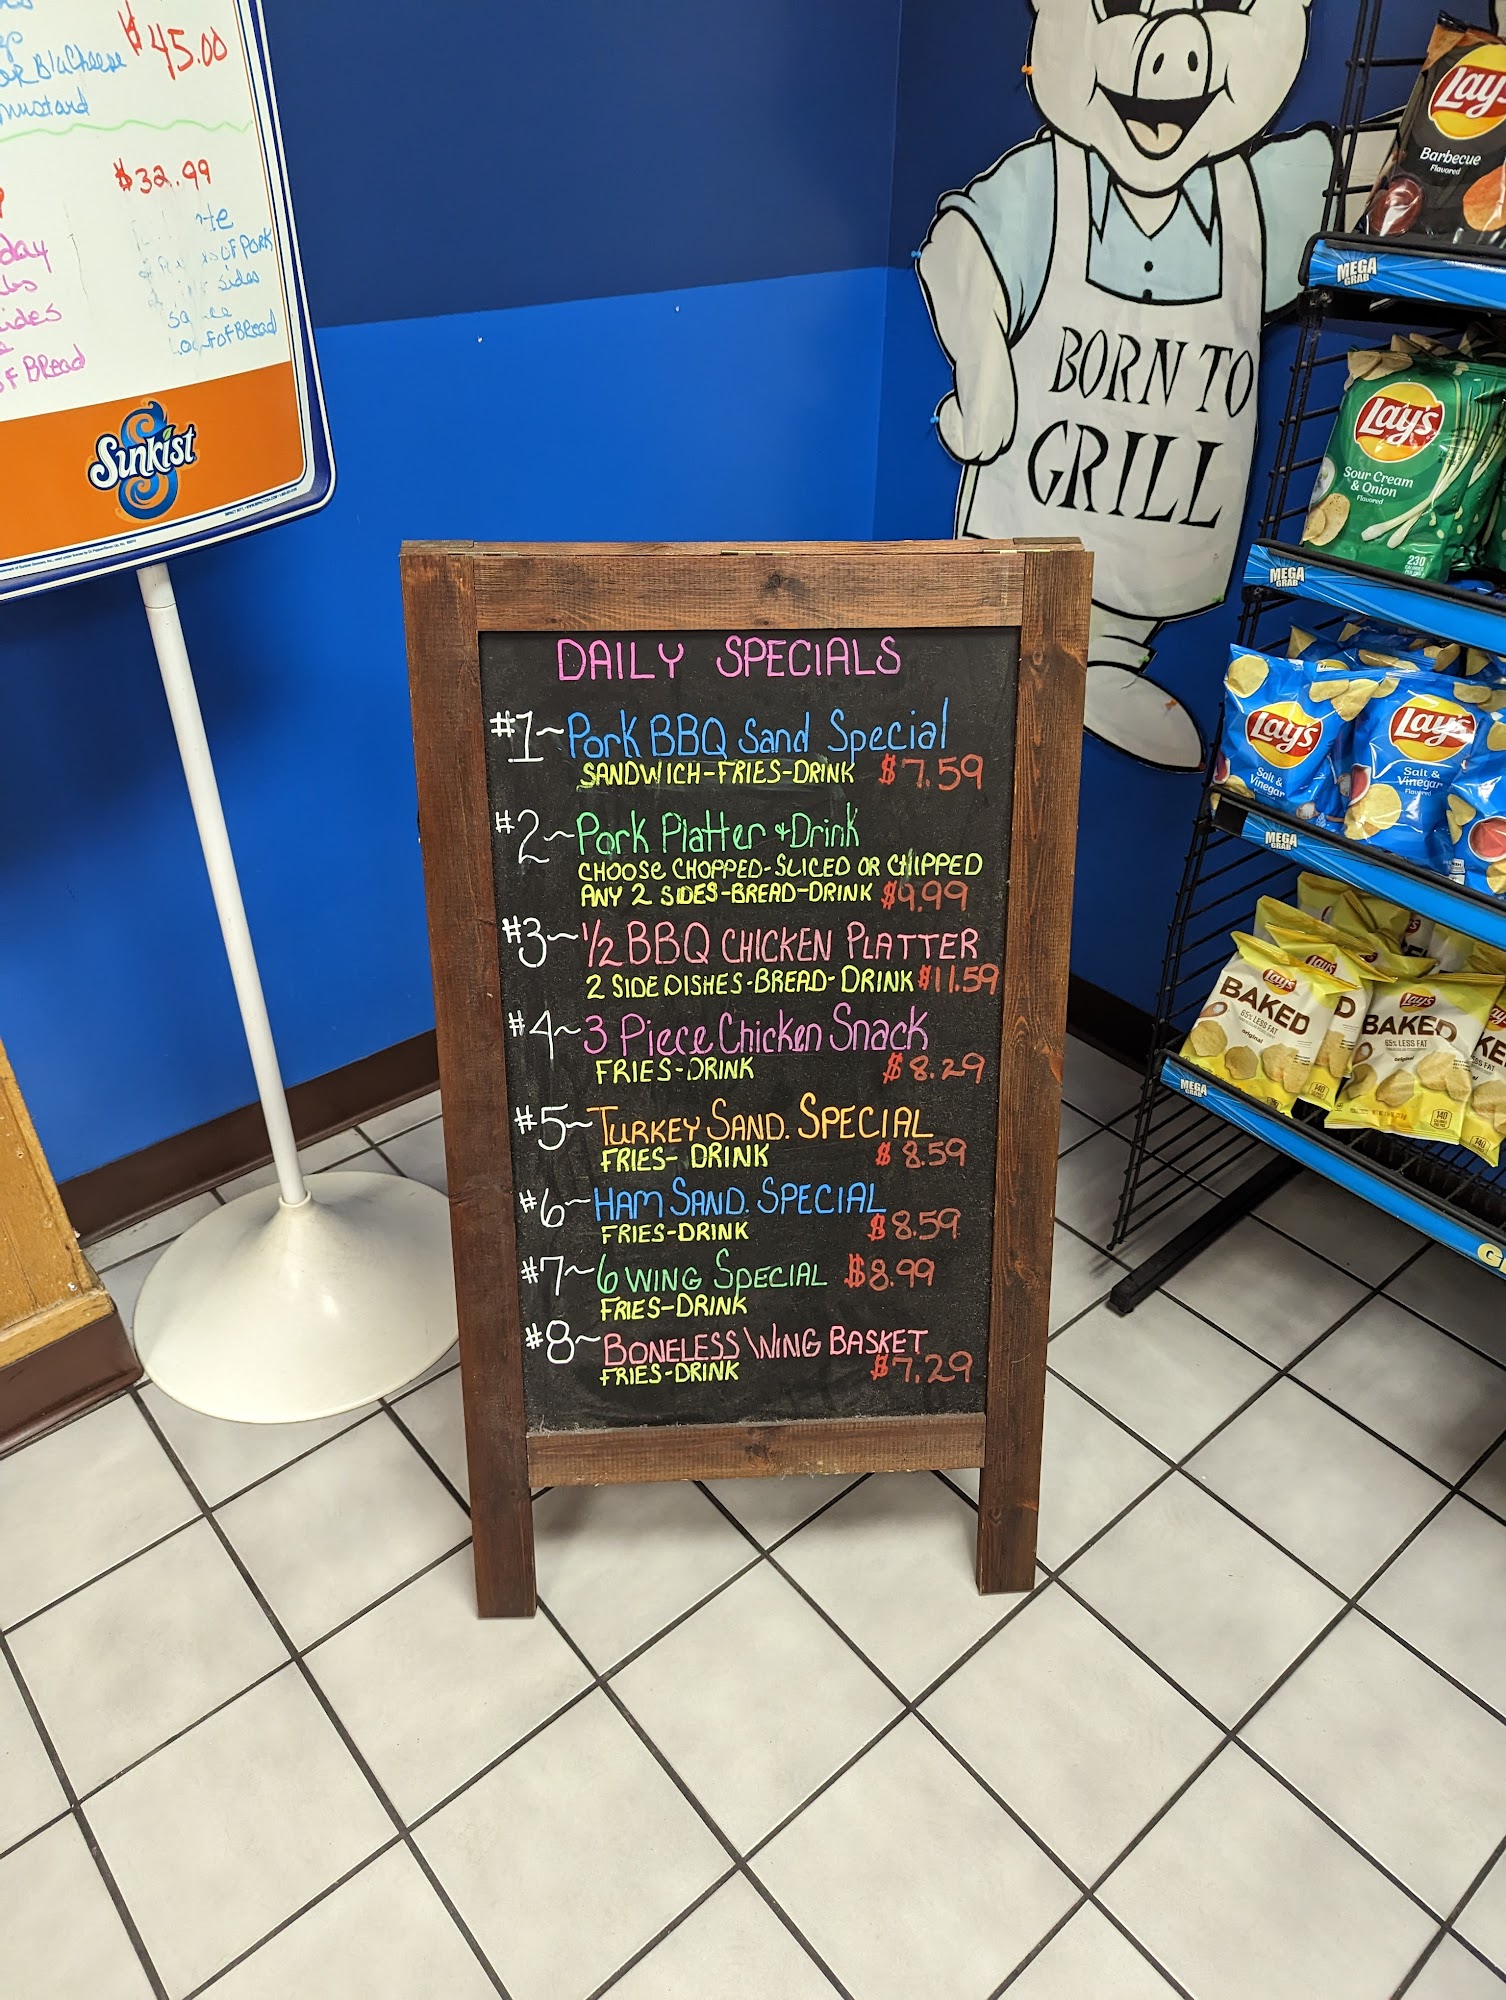 $45.00
OR BluCheese
mustard
$32.99
day
OF PORK
sides
ides
Loaf OF BREad
OF BREad
Sunkist
BORN TO
GRILL
DAILY SPECIALS
#1~ Pork BBQ Sand Special
SANDWICH-FRIES-DRINK $7.59
#2~ Pork Platter & Drink
CHOOSE CHOPPED-SLICED OR CHIPPED
ANY 2 SIDES-BREAD-DRINK $9.99
#3~ 1/2 BBQ CHICKEN PLATTER
2 SIDE DISHES-BREAD-DRINK $11.59
#4~ 3 Piece Chicken Snack
FRIES-DRINK $8.29
#5~ TURKEY SAND. SPECIAL
FRIES-DRINK $8.59
#6~ HAM SAND. SPECIAL
FRIES-DRINK $8.59
#7~ 6 WING SPECIAL $8.99
FRIES-DRINK
#8~ BONELESS WING BASKET
FRIES-DRINK $7.29
Lay's
Barbecue
Flavored
MEGA
GRAB
Lay's
Sour Cream
& Onion
Flavored
230
MEGA
GRAB
Lay's
Salt &
Vinegar
Lay's
Salt &
Vinegar
Flavored
MEGA
GRAB
Lay's
BAKED
65% LESS FAT
original
140
Lay's
Lay's
BAKED
65% LESS FAT
original
140
140
MEGA
GRAB